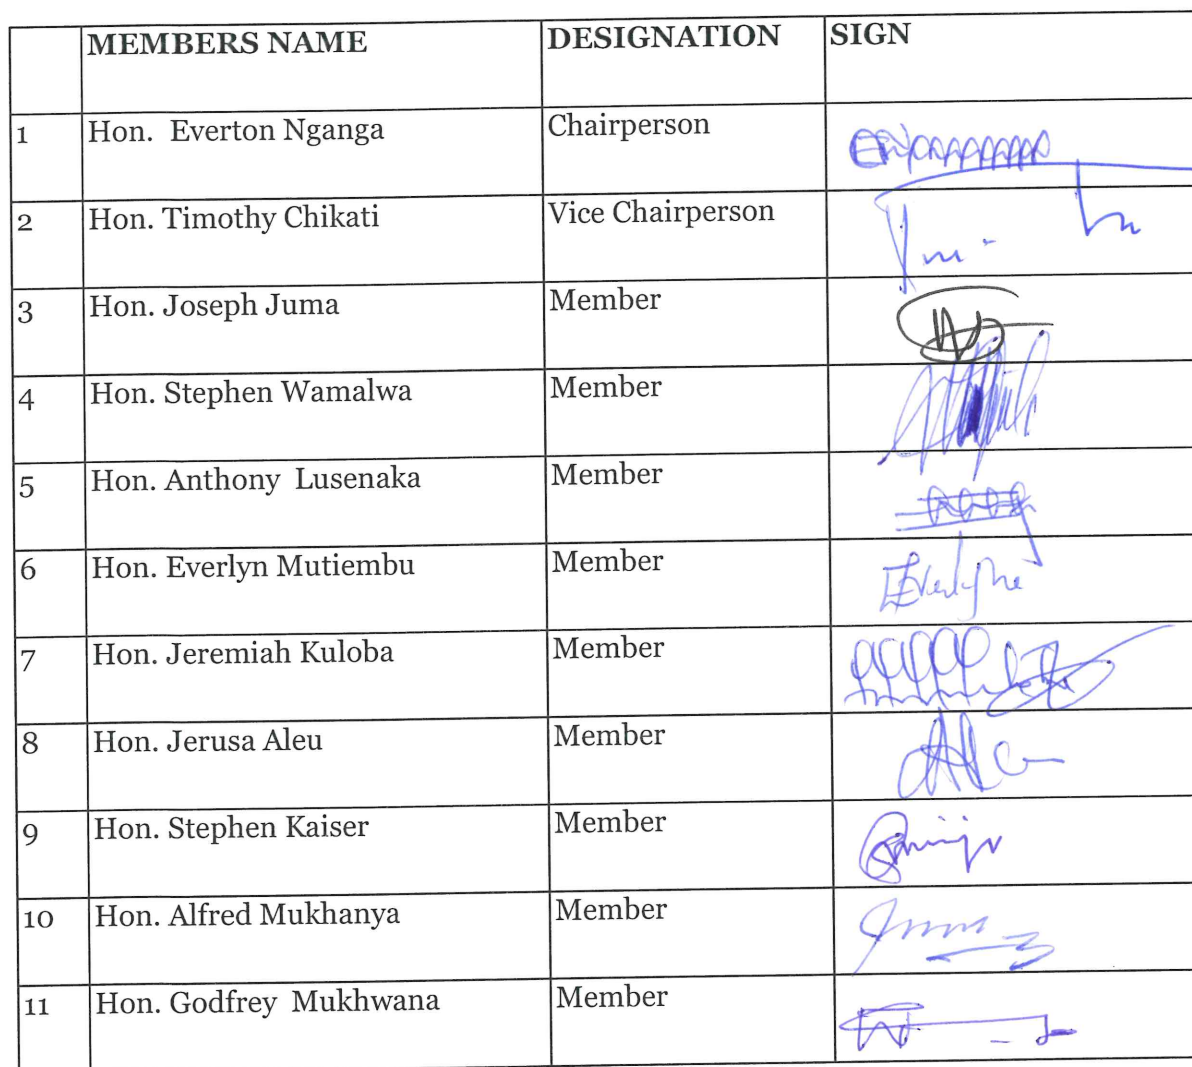 MEMBERS NAME DESIGNATION SIGN
1 Hon. Everton Nganga Chairperson
2 Hon. Timothy Chikati Vice Chairperson
3 Hon. Joseph Juma Member
4 Hon. Stephen Wamalwa Member
5 Hon. Anthony Lusenaka Member
6 Hon. Everlyn Mutiembu Member
7 Hon. Jeremiah Kuloba Member
8 Hon. Jerusa Aleu Member
9 Hon. Stephen Kaiser Member
10 Hon. Alfred Mukhanya Member
11 Hon. Godfrey Mukhwana Member